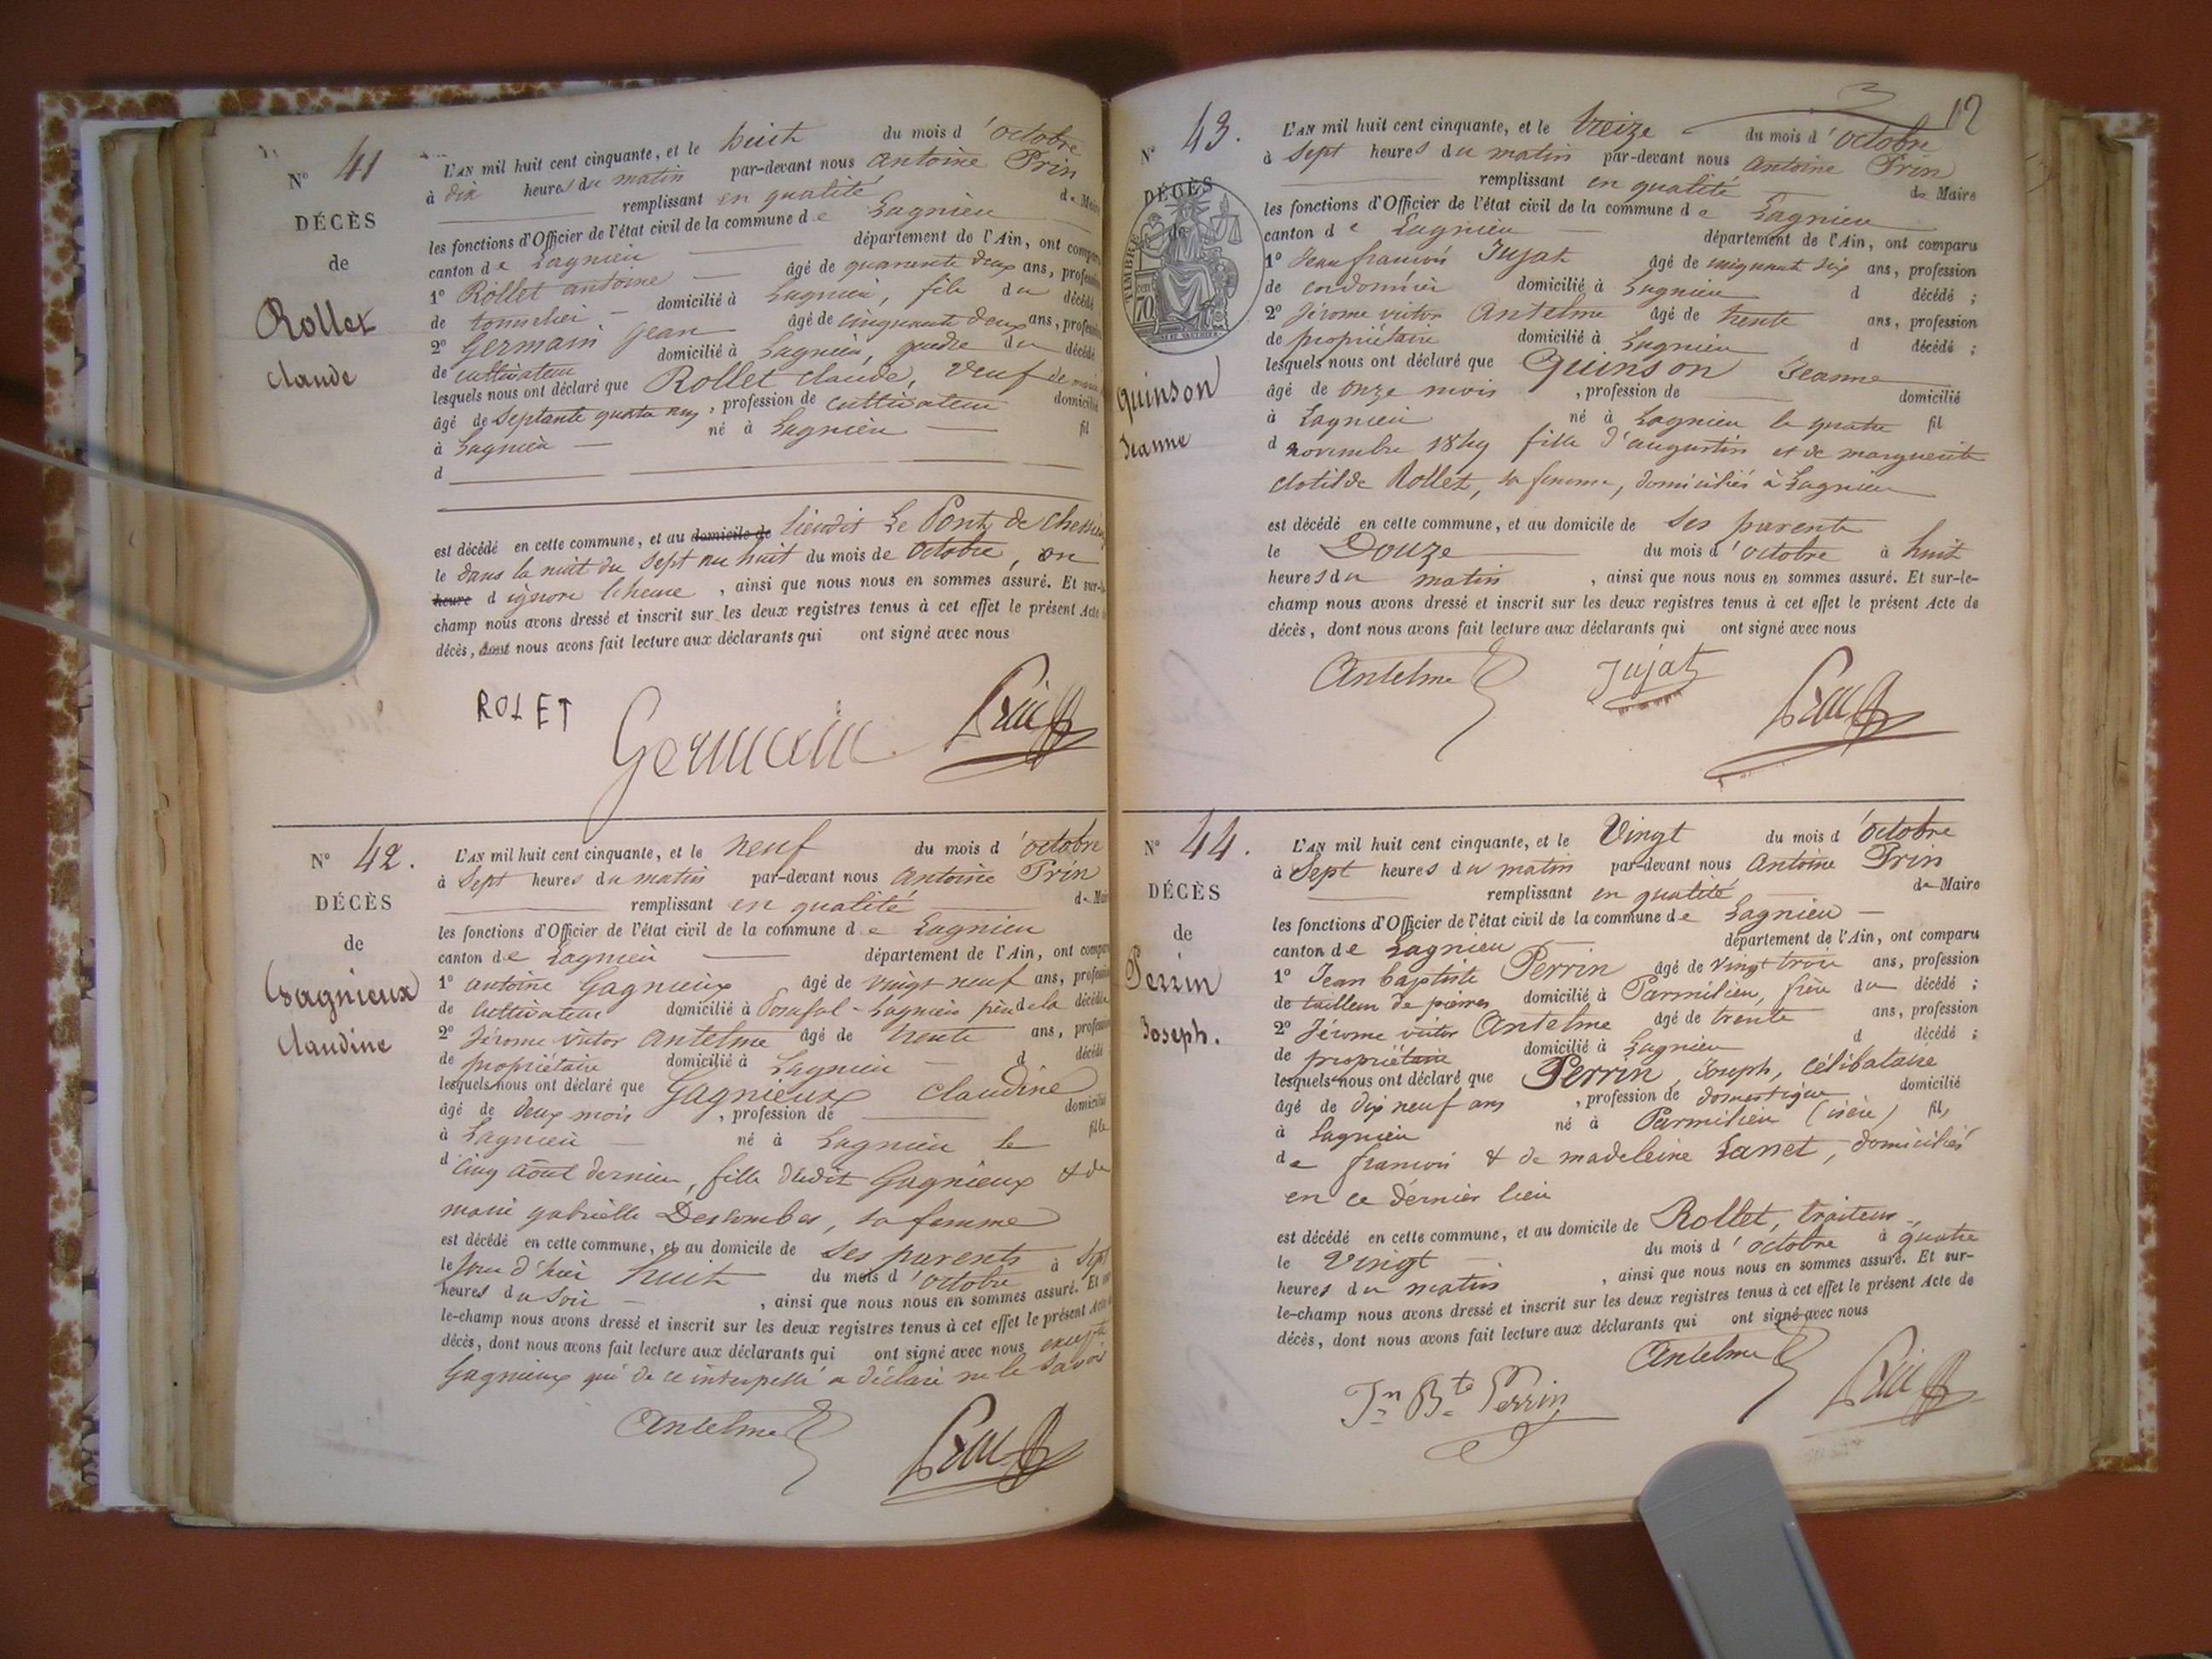 N° 41
DÉCÈS
de
Rollet
Claude
L'AN mil huit cent cinquante, et le huit du mois d'octobre
à dix heures du matin par-devant nous Antoine Prin
remplissant en qualité de Maire
les fonctions d'Officier de l'état civil de la commune de Lagnieu
canton de Lagnieu département de l'Ain, ont comparu
1° Rollet antoine âgé de quarante deux ans, profession
de tonnelier domicilié à Lagnieu, fils du décédé
2° Germain Jean âgé de cinquante deux ans, profession
de cultivateur domicilié à Lagnieu, gendre du décédé
lesquels nous ont déclaré que Rollet Claude, veuf de
âgé de septante quatre ans, profession de cultivateur domicilié
à Lagnieu né à Lagnieu fil
d
est décédé en cette commune, et au domicile de lieudit Le Pont de
le dans la nuit du sept au huit du mois de octobre, on
heure d ignore l'heure, ainsi que nous nous en sommes assuré. Et sur-le-
champ nous avons dressé et inscrit sur les deux registres tenus à cet effet le présent Acte de
décès, dont nous avons fait lecture aux déclarants qui ont signé avec nous
ROLET Germain Prin
N° 42.
DÉCÈS
de
Gagnieux
Claudine
L'AN mil huit cent cinquante, et le neuf du mois d'octobre
à sept heures du matin par-devant nous Antoine Prin
remplissant en qualité de Maire
les fonctions d'Officier de l'état civil de la commune de Lagnieu
canton de Lagnieu département de l'Ain, ont comparu
1° antoine Gagnieux âgé de vingt neuf ans, profession
de cultivateur domicilié à Lagnieu père de la décédée
2° Jérome victor Antelme âgé de trente ans, profession
de propriétaire domicilié à Lagnieu d décédé
lesquels nous ont déclaré que Gagnieux Claudine
âgé de deux mois, profession de domicilié
à Lagnieu né à Lagnieu le fille
d cinq août dernier, fille dudit Gagnieux & de
marie gabrielle Descombes, sa femme
est décédé en cette commune, et au domicile de ses parents à sept
le jour d'hier huit du mois d'octobre
heures du soir, ainsi que nous nous en sommes assuré. Et sur-
le-champ nous avons dressé et inscrit sur les deux registres tenus à cet effet le présent Acte de
décès, dont nous avons fait lecture aux déclarants qui ont signé avec nous excepté
Gagnieux qui de ce interpellé a déclaré ne le savoir
Antelme Prin
12
N° 43.
DÉCÈS
de
TIMBRE
70
Quinson
Jeanne
L'AN mil huit cent cinquante, et le treize du mois d'octobre
à sept heures du matin par-devant nous Antoine Prin
remplissant en qualité de Maire
les fonctions d'Officier de l'état civil de la commune de Lagnieu
canton de Lagnieu département de l'Ain, ont comparu
1° Jean françois Jujat âgé de cinquante six ans, profession
de cordonnier domicilié à Lagnieu d décédé ;
2° Jérome victor Antelme âgé de trente ans, profession
de propriétaire domicilié à Lagnieu d décédé ;
lesquels nous ont déclaré que Quinson Jeanne
âgé de onze mois, profession de domicilié
à Lagnieu né à Lagnieu le quatre fil
d novembre 1849 fille d'augustin et de marguerite
clotilde Rollet, sa femme, domiciliés à Lagnieu
est décédé en cette commune, et au domicile de ses parents
le Douze du mois d'octobre à huit
heures du matin, ainsi que nous nous en sommes assuré. Et sur-le-
champ nous avons dressé et inscrit sur les deux registres tenus à cet effet le présent Acte de
décès, dont nous avons fait lecture aux déclarants qui ont signé avec nous
Antelme Jujat Prin
N° 44.
DÉCÈS
de
Perrin
Joseph.
L'AN mil huit cent cinquante, et le Vingt du mois d'octobre
à sept heures du matin par-devant nous Antoine Prin
remplissant en qualité de Maire
les fonctions d'Officier de l'état civil de la commune de Lagnieu
canton de Lagnieu département de l'Ain, ont comparu
1° Jean baptiste Perrin âgé de vingt trois ans, profession
de tailleur de pierres domicilié à Parmilieu, frère du décédé ;
2° Jérome victor Antelme âgé de trente ans, profession
de propriétaire domicilié à Lagnieu d décédé ;
lesquels nous ont déclaré que Perrin, Joseph, célibataire
âgé de dix neuf ans, profession de domestique domicilié
à Lagnieu né à Parmilieu (isère) fils
de françois & de madeleine Lanet, domiciliés
en ce dernier lieu
est décédé en cette commune, et au domicile de Rollet, traiteur
le vingt du mois d'octobre à quatre
heures du matin, ainsi que nous nous en sommes assuré. Et sur-
le-champ nous avons dressé et inscrit sur les deux registres tenus à cet effet le présent Acte de
décès, dont nous avons fait lecture aux déclarants qui ont signé avec nous
Jn Bte Perrin Antelme Prin